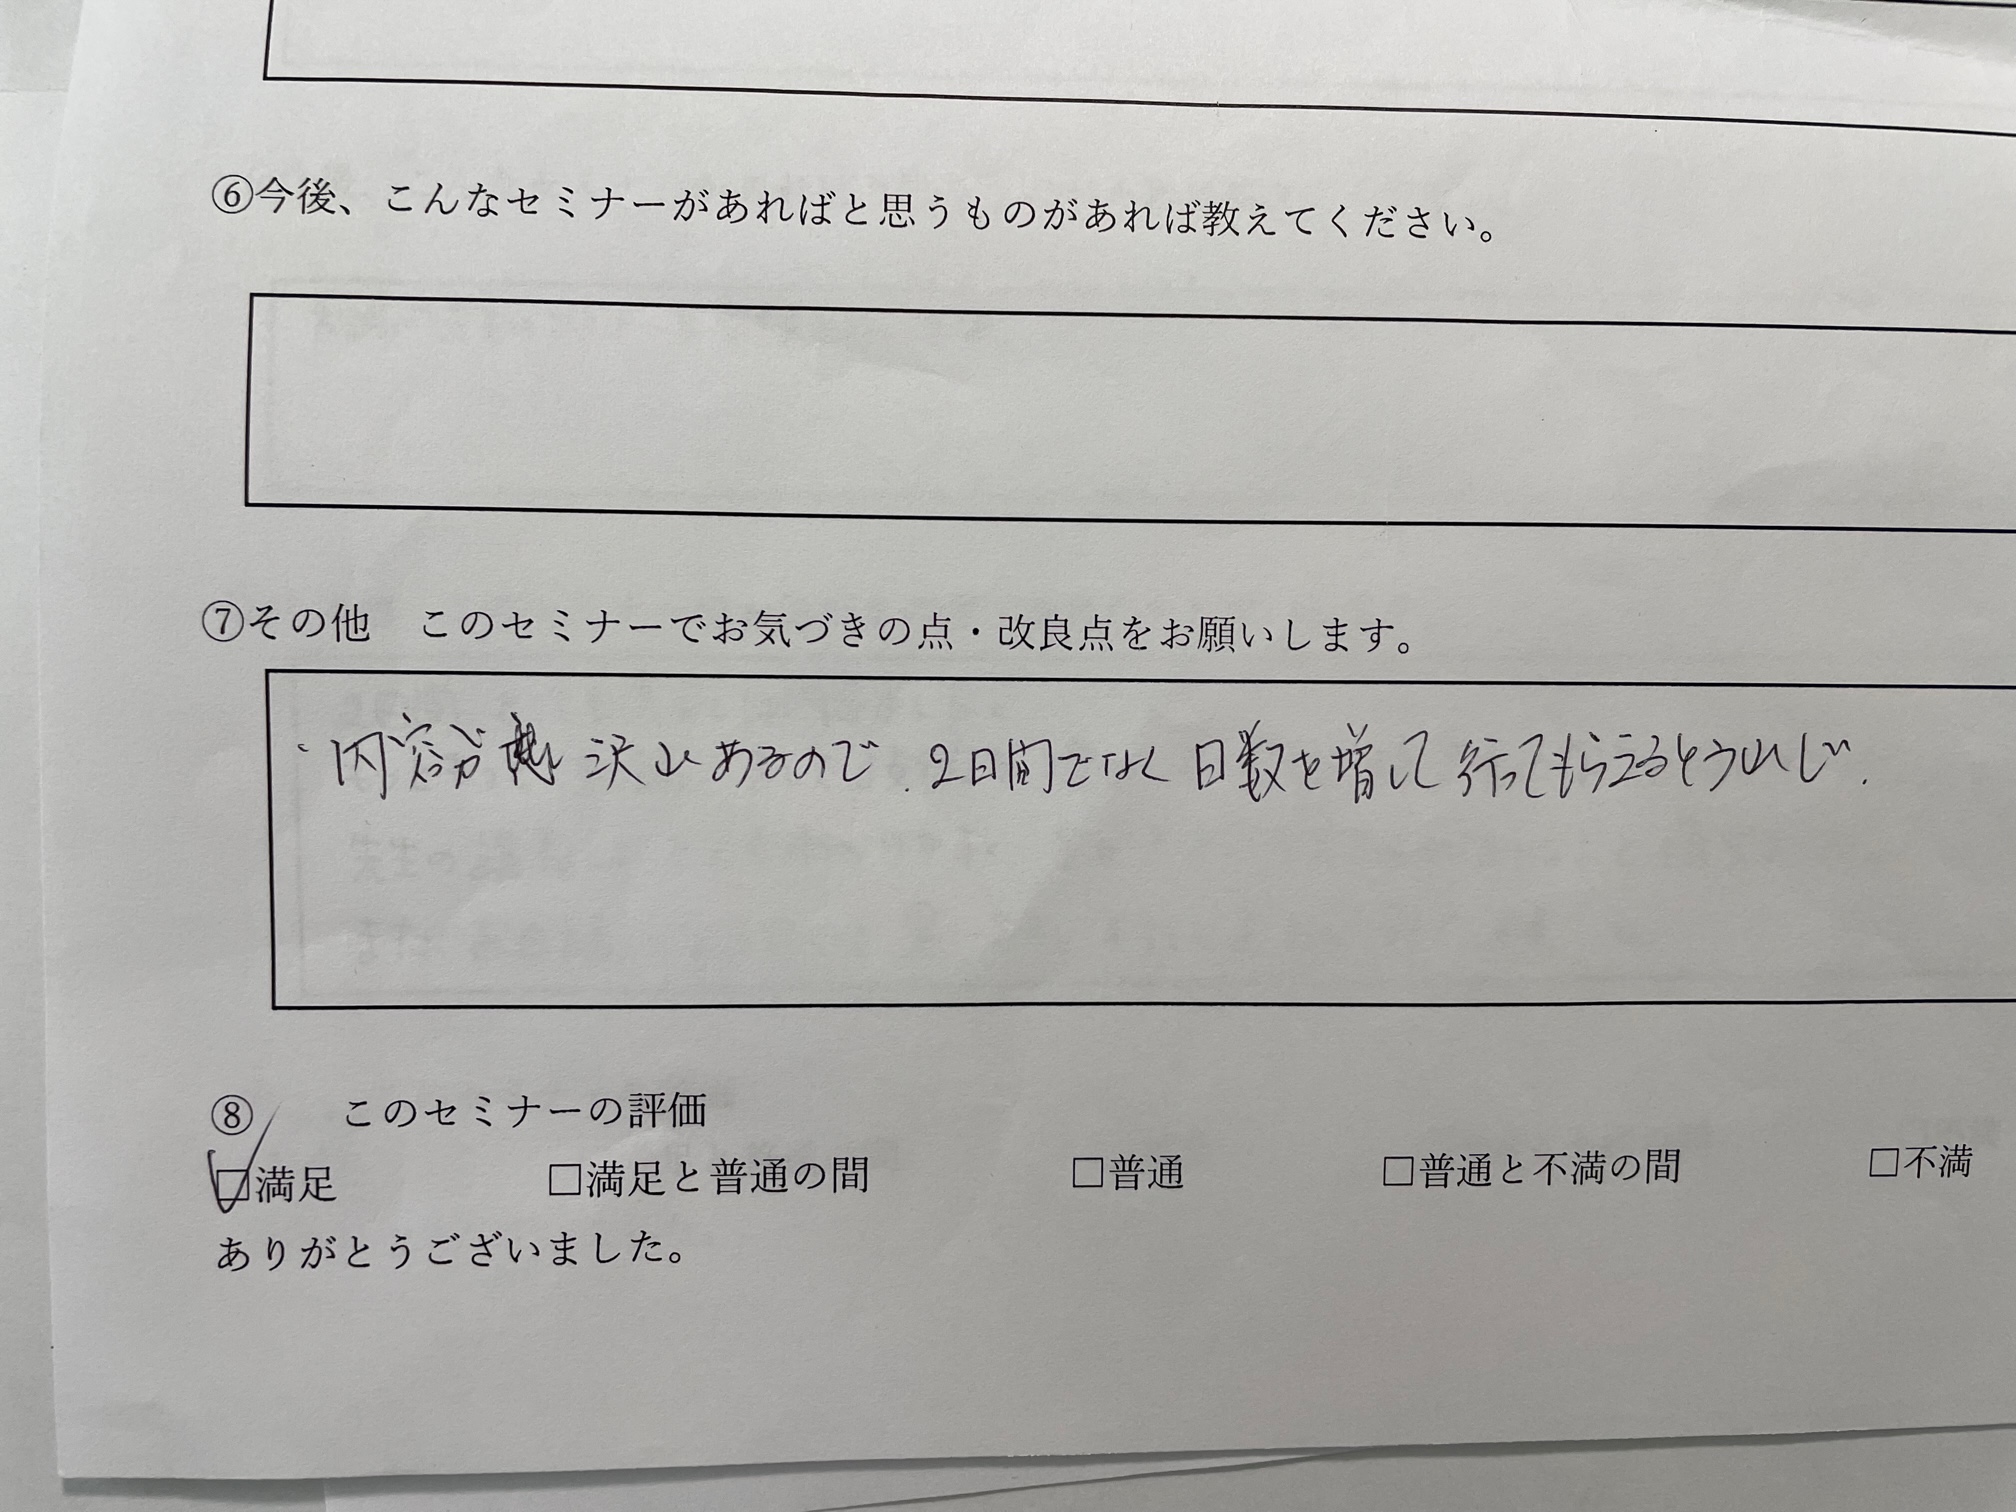 ⑥今後、こんなセミナーがあればと思うものがあれば教えてください。
⑦その他　このセミナーでお気づきの点・改良点をお願いします。
・内容が 沢山あるので、2日間でなく 日数を増して行ってもらえるとうれしい。
⑧　　このセミナーの評価
☑満足　□満足と普通の間　□普通　□普通と不満の間　□不満
ありがとうございました。